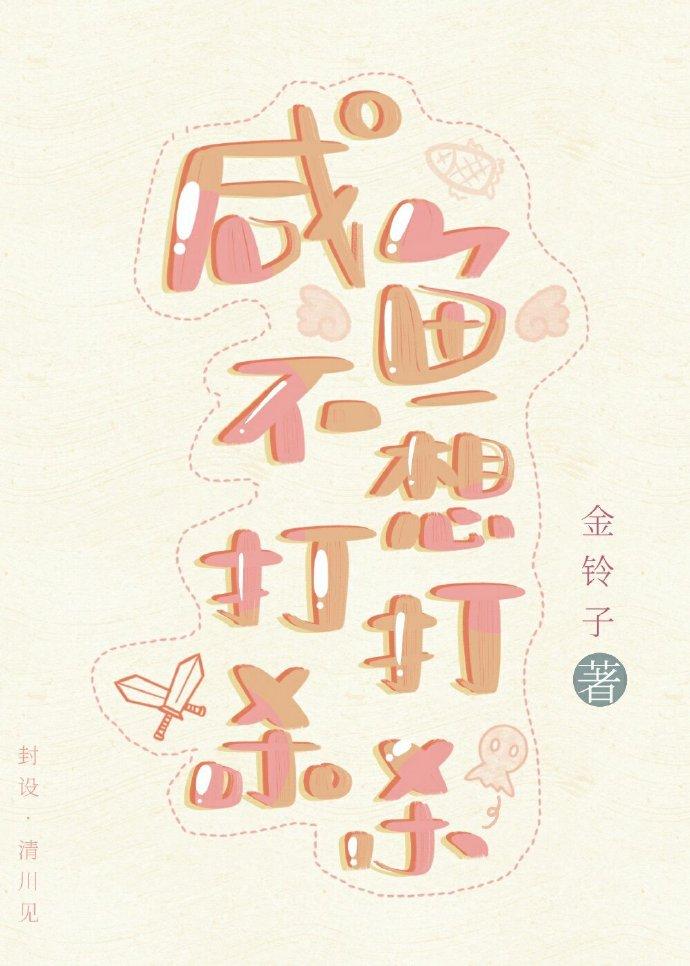 咸鱼
不想
打打
杀杀
金铃子
著
封设·清川见